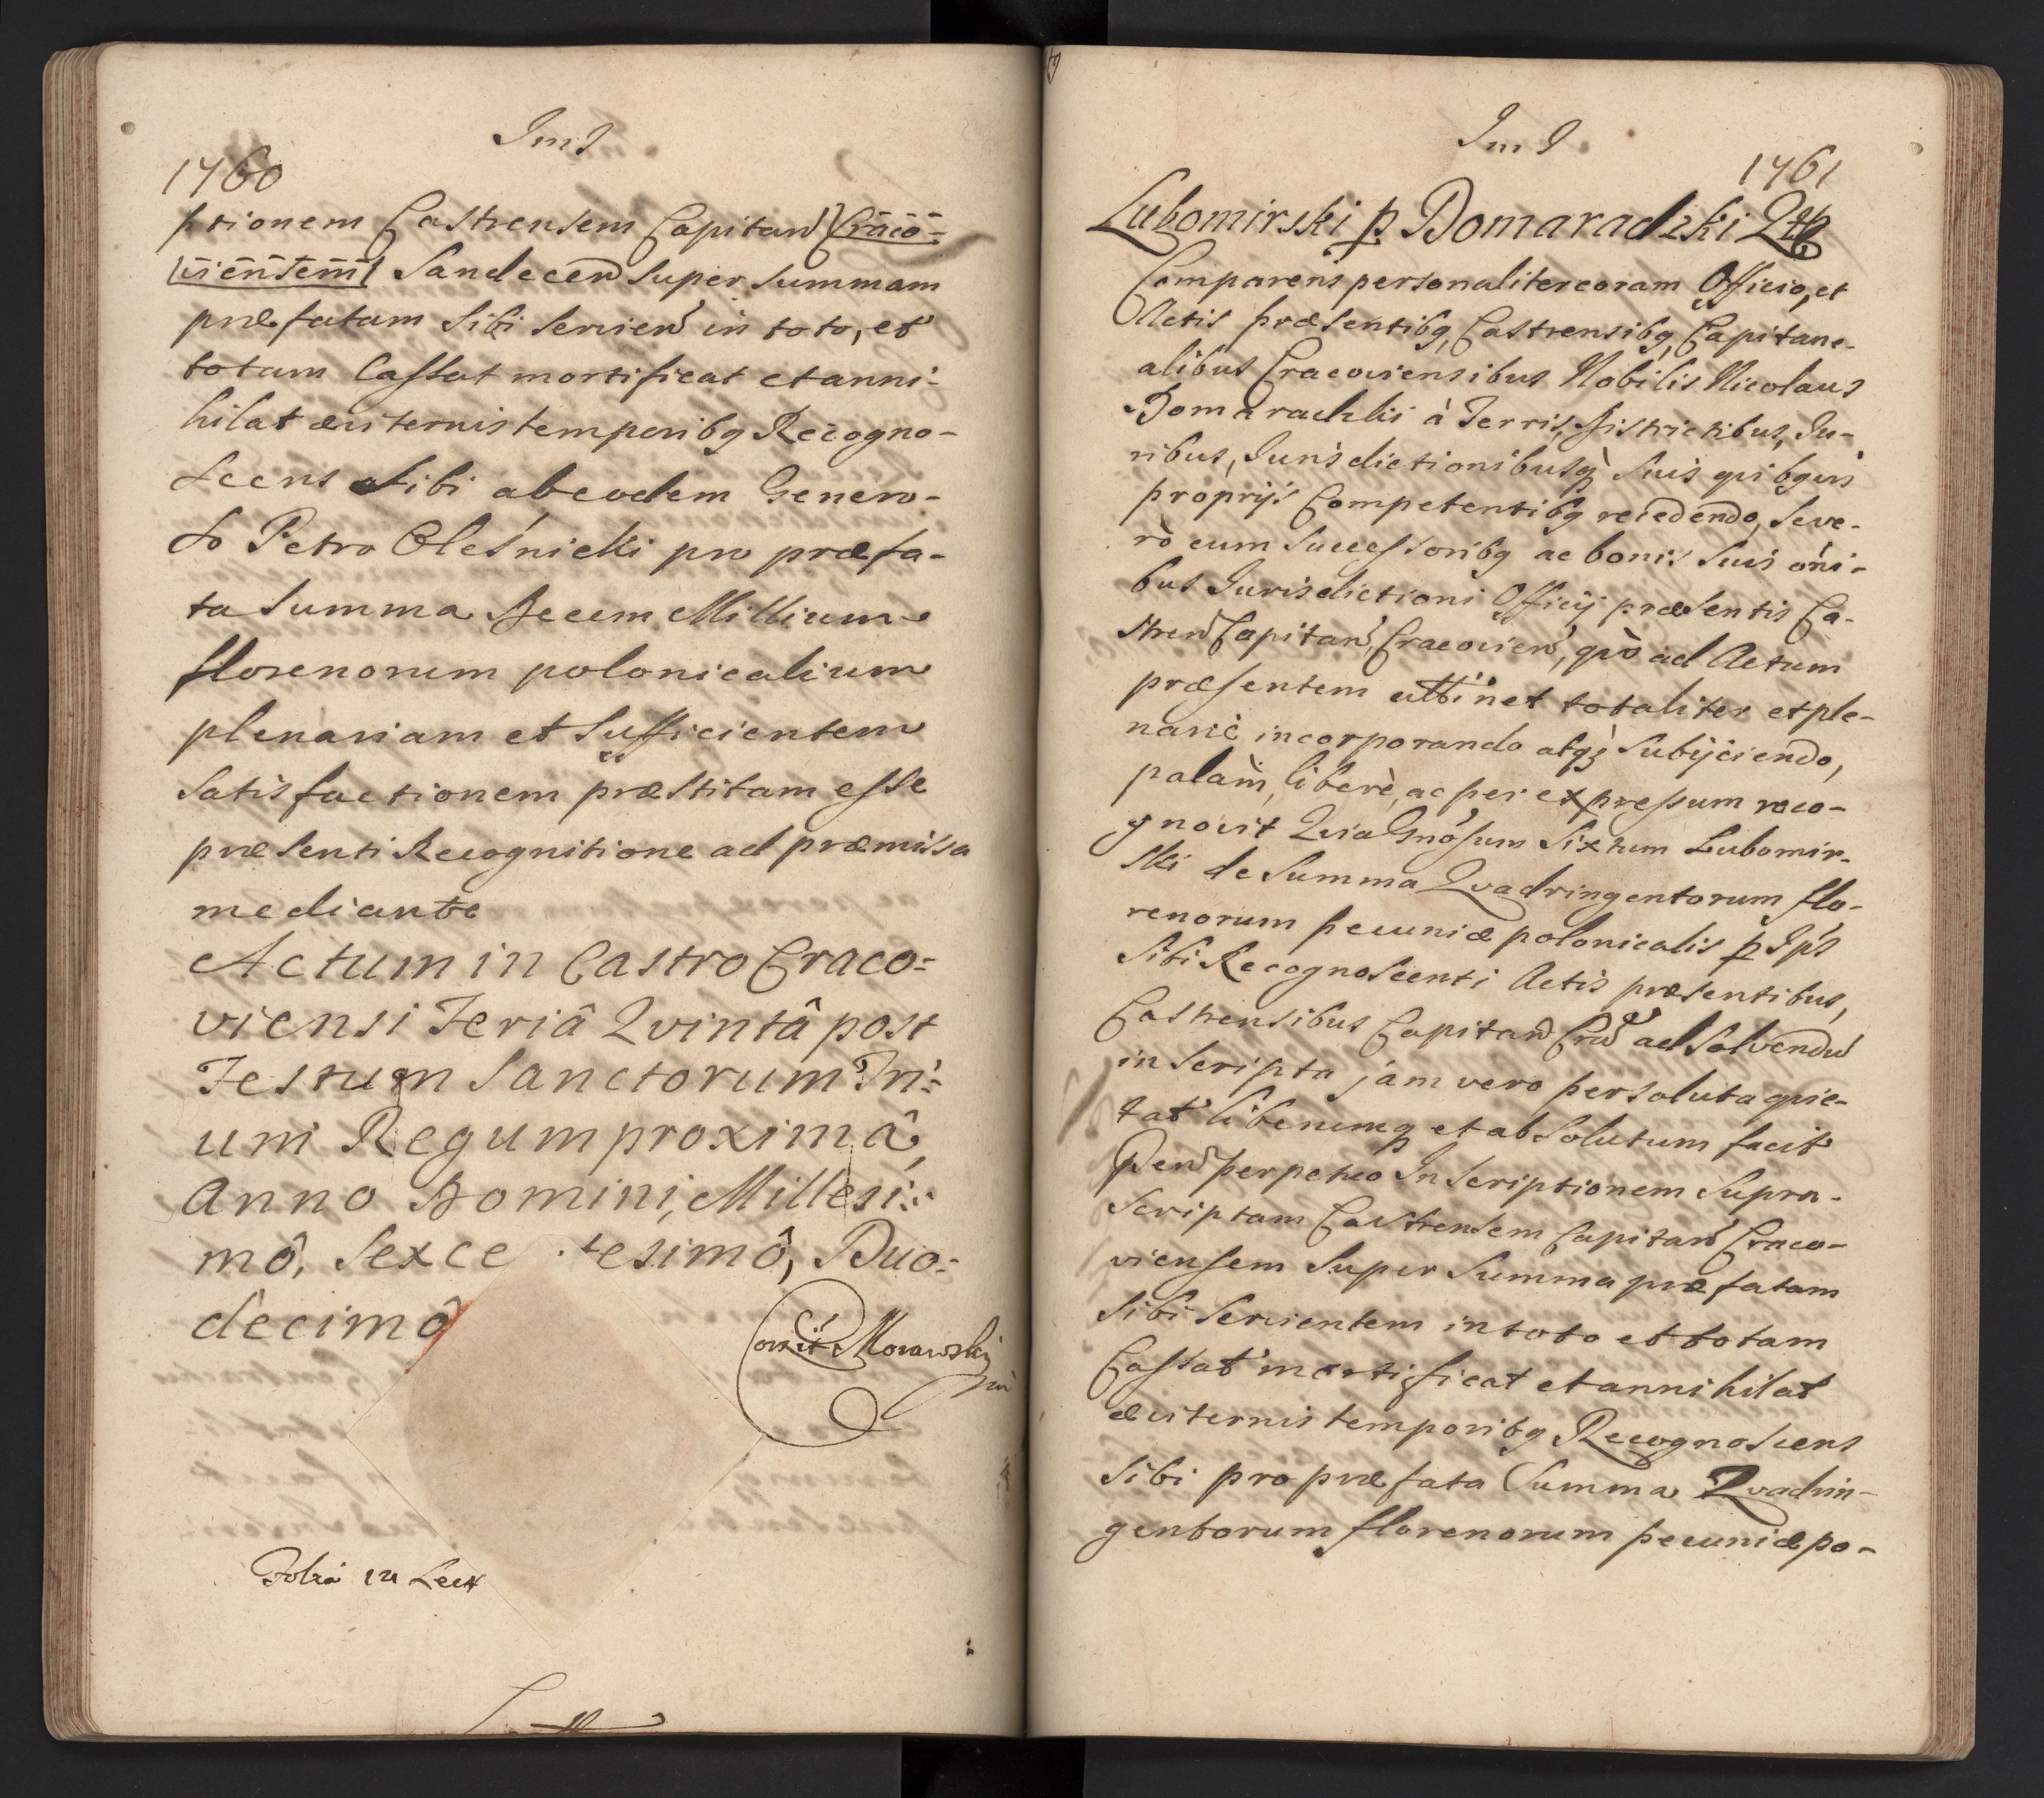 1760
ptionem Castrensem Capitan Craco-
viensem Sandecen super summam
præfatam sibi servien in toto, et
totum Cassat mortificat et anni-
hilat æviternis temporibq Recogno-
scens sibi ab eodem Genero-
so Petro Oleśnicki pro præfa-
ta summa Decem Millium
florenorum polonicalium
plenariam et sufficientem
satisfactionem præstitam esse
præsenti Recognitione ad præmissa
mediante
Actum in Castro Craco=
viensi Feriâ Qvintâ post
Festum Sanctorum Tri=
um Regum proximâ,
Anno Domini, Millesi=
mô, Sexce tesimô, Duo=
decimô
Morawski
1761
Lubomirski p Domaradzki Qtt
Comparens personaliter coram Officio, et
Actis præsentibq, Castrensibq, Capitane-
alibus Cracoviensibus Nobilis Nicolaus
Domaradzki à Terris, Districtibus, Ju-
ribus, Jurisdictionibusq suis qvibqvis
proprijs Competentibq recedendo, seve-
rò cum successoribq ac bonis suis oni-
bus Jurisdictioni Officij præsentis Ca-
stren Capitan Cracovien, qvò ad Actum
præsentem attinet totaliter et ple-
nariè incorporando atqz subijciendo,
palàm, liberè, ac per expressum reco-
gnovit Qvia Gnosum Sixtum Lubomir-
ski de Summa Qvadringentorum flo-
renorum pecuniæ polonicalis p Ips
sibi Recognoscenti Actis præsentibus,
Castrensibus Capitan Crac ad solvendu
inscripta jam vero persoluta qvie-
tat liberumq et absolutum facit
perpetuo Inscriptionem supra-
scriptam Castrensem Capitan Craco-
viensem super Summa præfatam
sibi servientem in toto et totam
Cassat mortificat et annihilat
æviternis temporibq Recognoscens
sibi pro præfata Summa Qvadrin-
gentorum florenorum pecuniæ po-